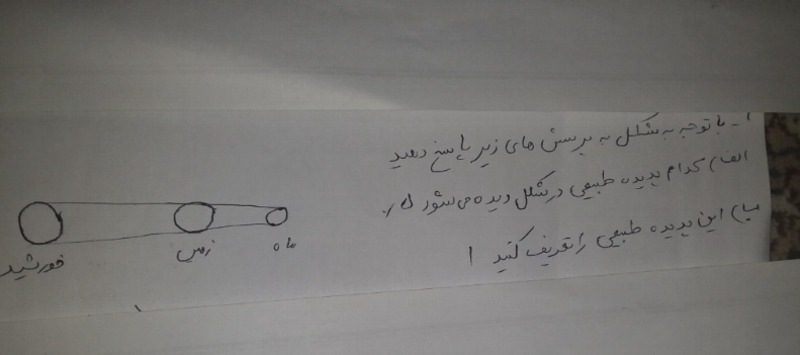 ۱- با توجه به شکل به پرسش های زیر پاسخ دهید
الف) کدام پدیده طبیعی در شکل دیده می شود ۵/.
ب) این پدیده طبیعی را تعریف کنید ۱
خورشید زمین ماه